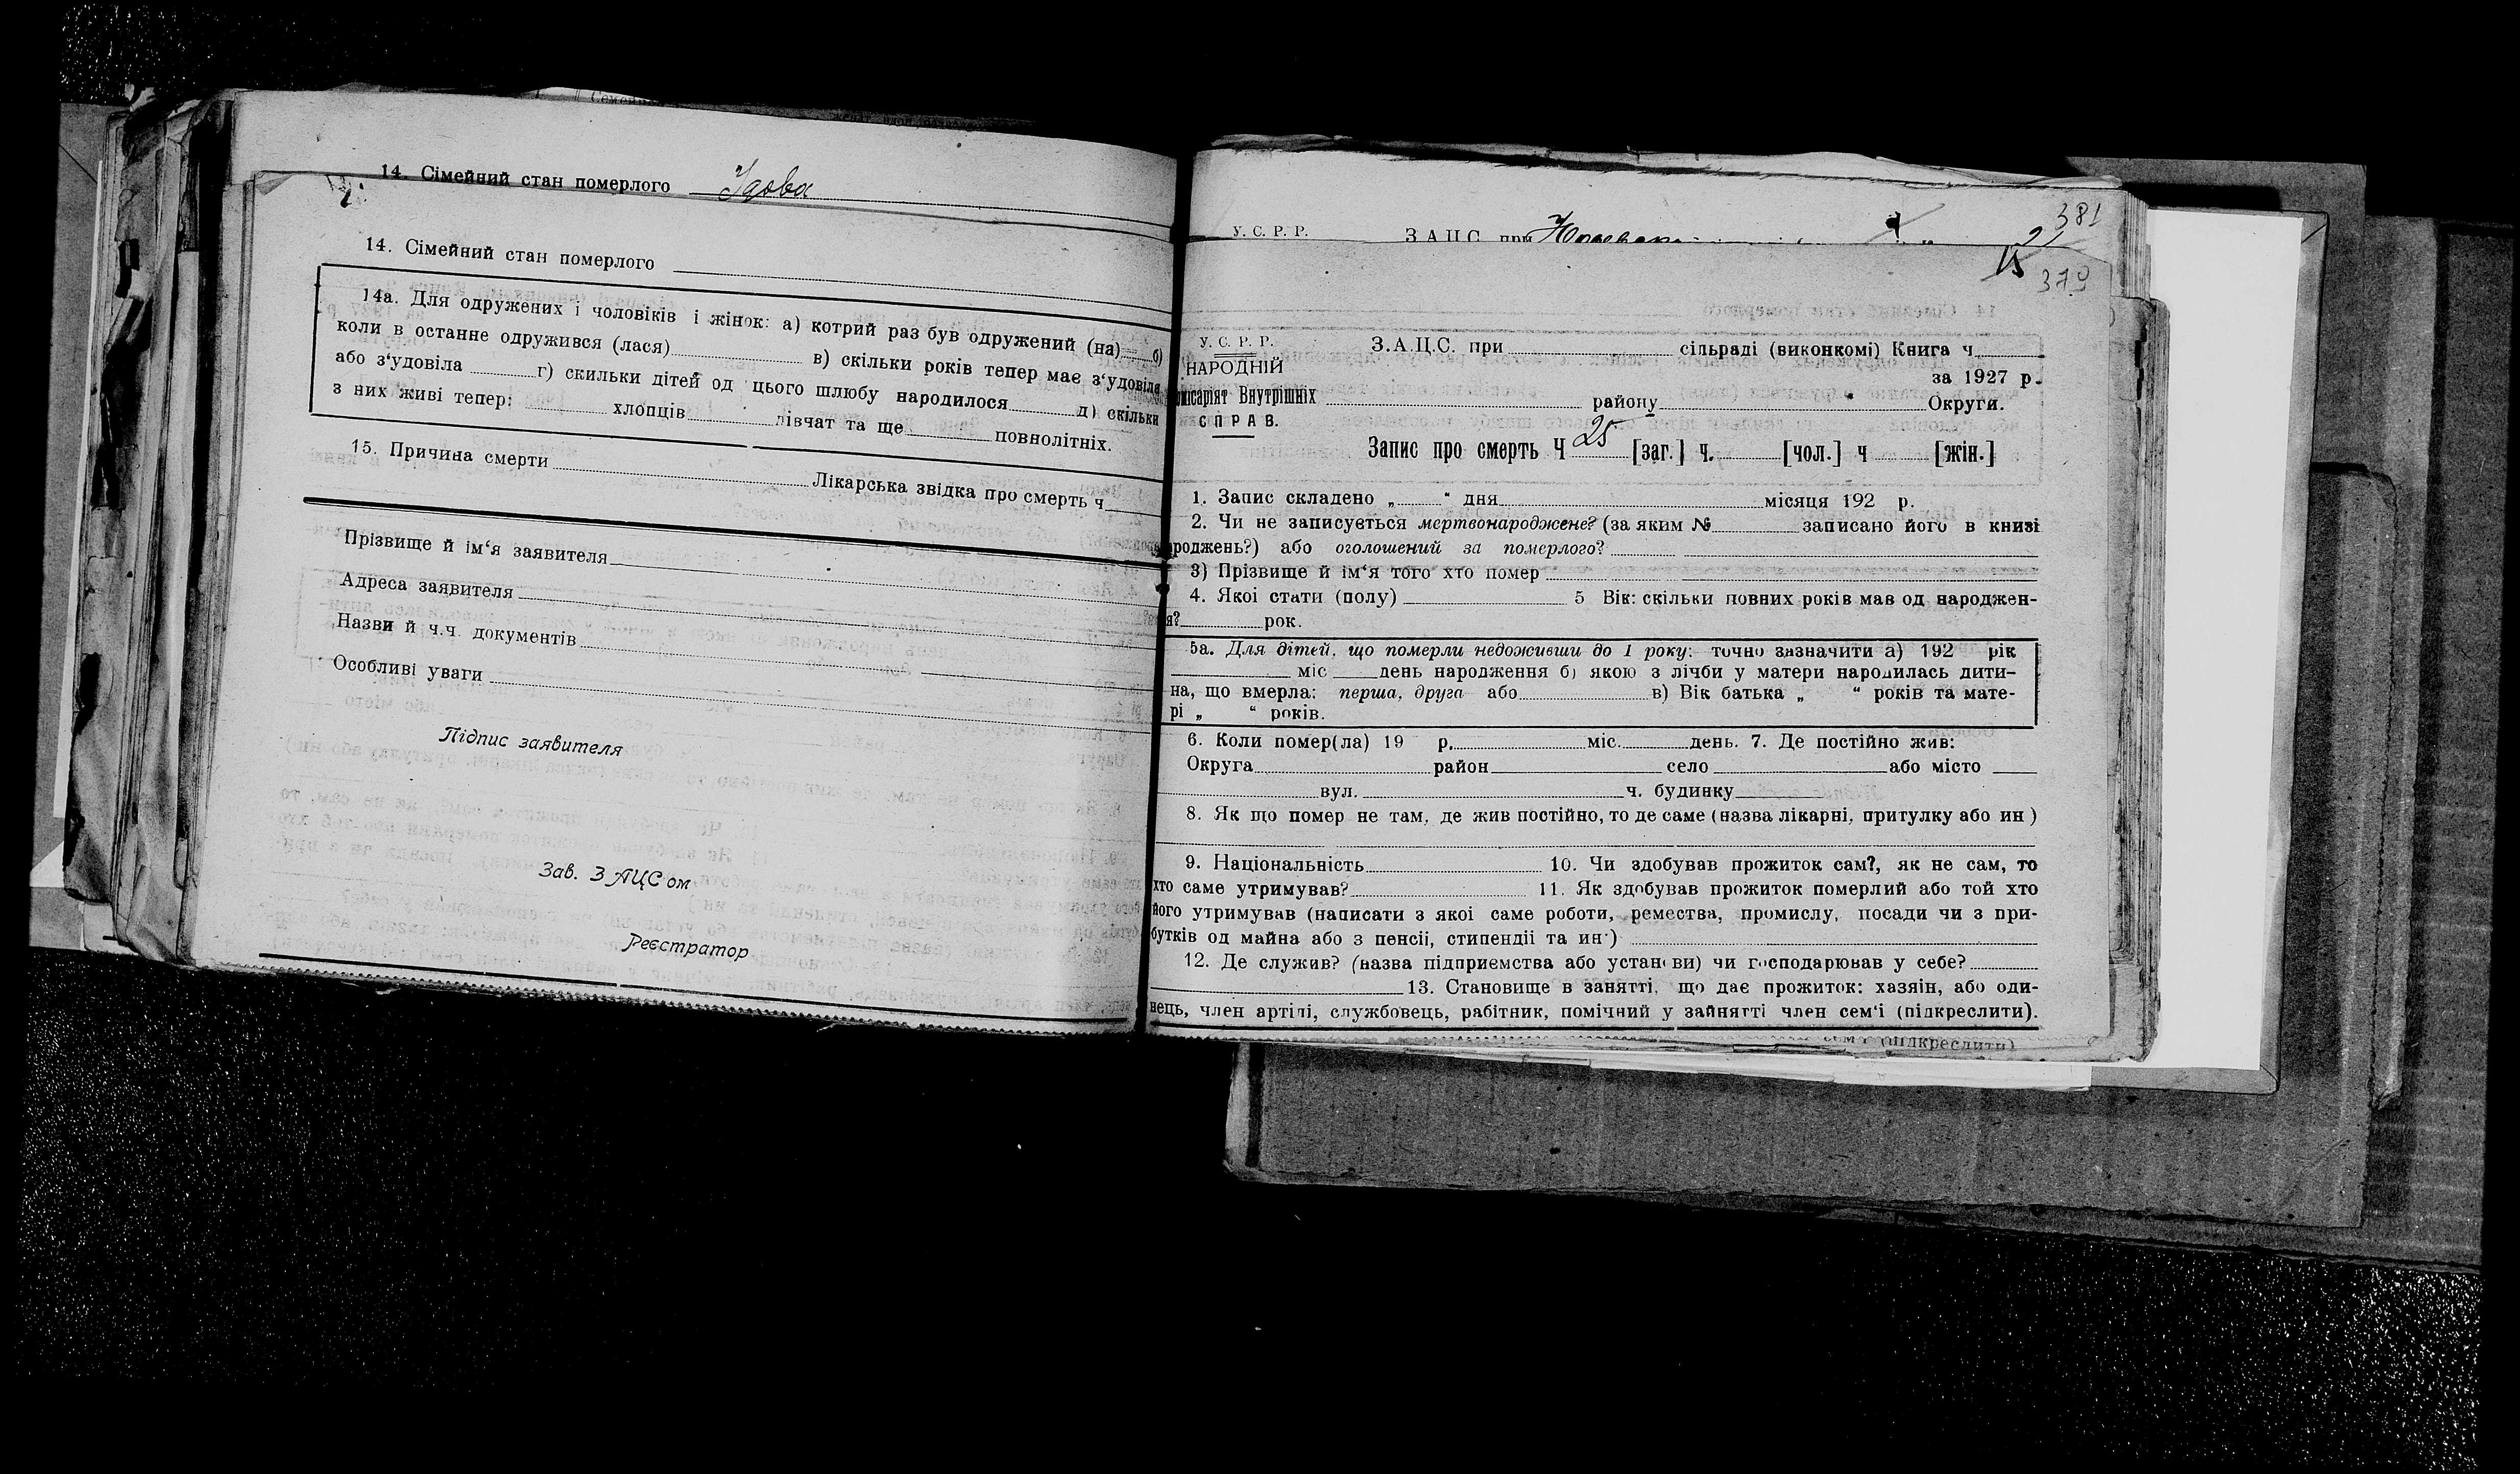 14. Сімейний стан померлого Удова
14. Сімейний стан померлого
14а. Для одружених і чоловіків і жінок: а) котрий раз був одружений (на) б)
коли в останне одружився (лася) в) скільки років тепер має з‘удовіла
або з‘удовіла г) скильки дітей од цього шлюбу народилося д) скільки
з них живі тепер: хлопців дівчат та ще повнолітніх.
15. Причина смерти Лікарська звідка про смерть ч
Прізвище й ім‘я заявителя
Адреса заявителя
Назви й ч.ч. документів
Особливі уваги
Підпис заявителя
Зав. ЗАЦСом
Реєстратор
381
У. С. Р. Р. З.А.Ц.С. при
15
379
У. С. Р. Р. З.А.Ц.С. при сільраді (виконкомі) Книга ч.
НАРОДНІЙ за 1927 р.
місаріят Внутрішніх району Округи.
СПРАВ.
Запис про смерть Ч 25 [заг.] ч. [чол.] ч [жін.]
1. Запис складено „ “ дня місяця 192 р.
2. Чи не записується мертвонароджене? (за яким № записано його в книзі
роджень?) або оголошений за померлого?
3) Прізвище й ім‘я того хто помер
4. Якоі стати (полу) 5 Вік: скільки повних років мав од народжен-
я? рок.
5а. Для дітей, що померли недоживши до 1 року: точно зазначити а) 192 рік
міс день народження б) якою з лічби у матери народилась дити-
на, що вмерла: перша, друга або в) Вік батька „ “ років та мате-
рі „ “ років.
6. Коли помер(ла) 19 р. міс. день. 7. Де постійно жив:
Округа район село або місто
вул. ч. будинку
8. Як що помер не там, де жив постійно, то де саме (назва лікарні, притулку або ин )
9. Національність 10. Чи здобував прожиток сам?, як не сам, то
хто саме утримував? 11. Як здобував прожиток померлий або той хто
його утримував (написати з якоі саме роботи, ремества, промислу, посади чи з при-
бутків од майна або з пенсіі, стипендіі та ин.)
12. Де служив? (назва підприємства або установи) чи господарював у себе?
13. Становище в занятті, що дає прожиток: хазяін, або оди-
нець, член артілі, службовець, рабітник, помічний у зайнятті член сем‘і (підкреслити).
(підкреслити)